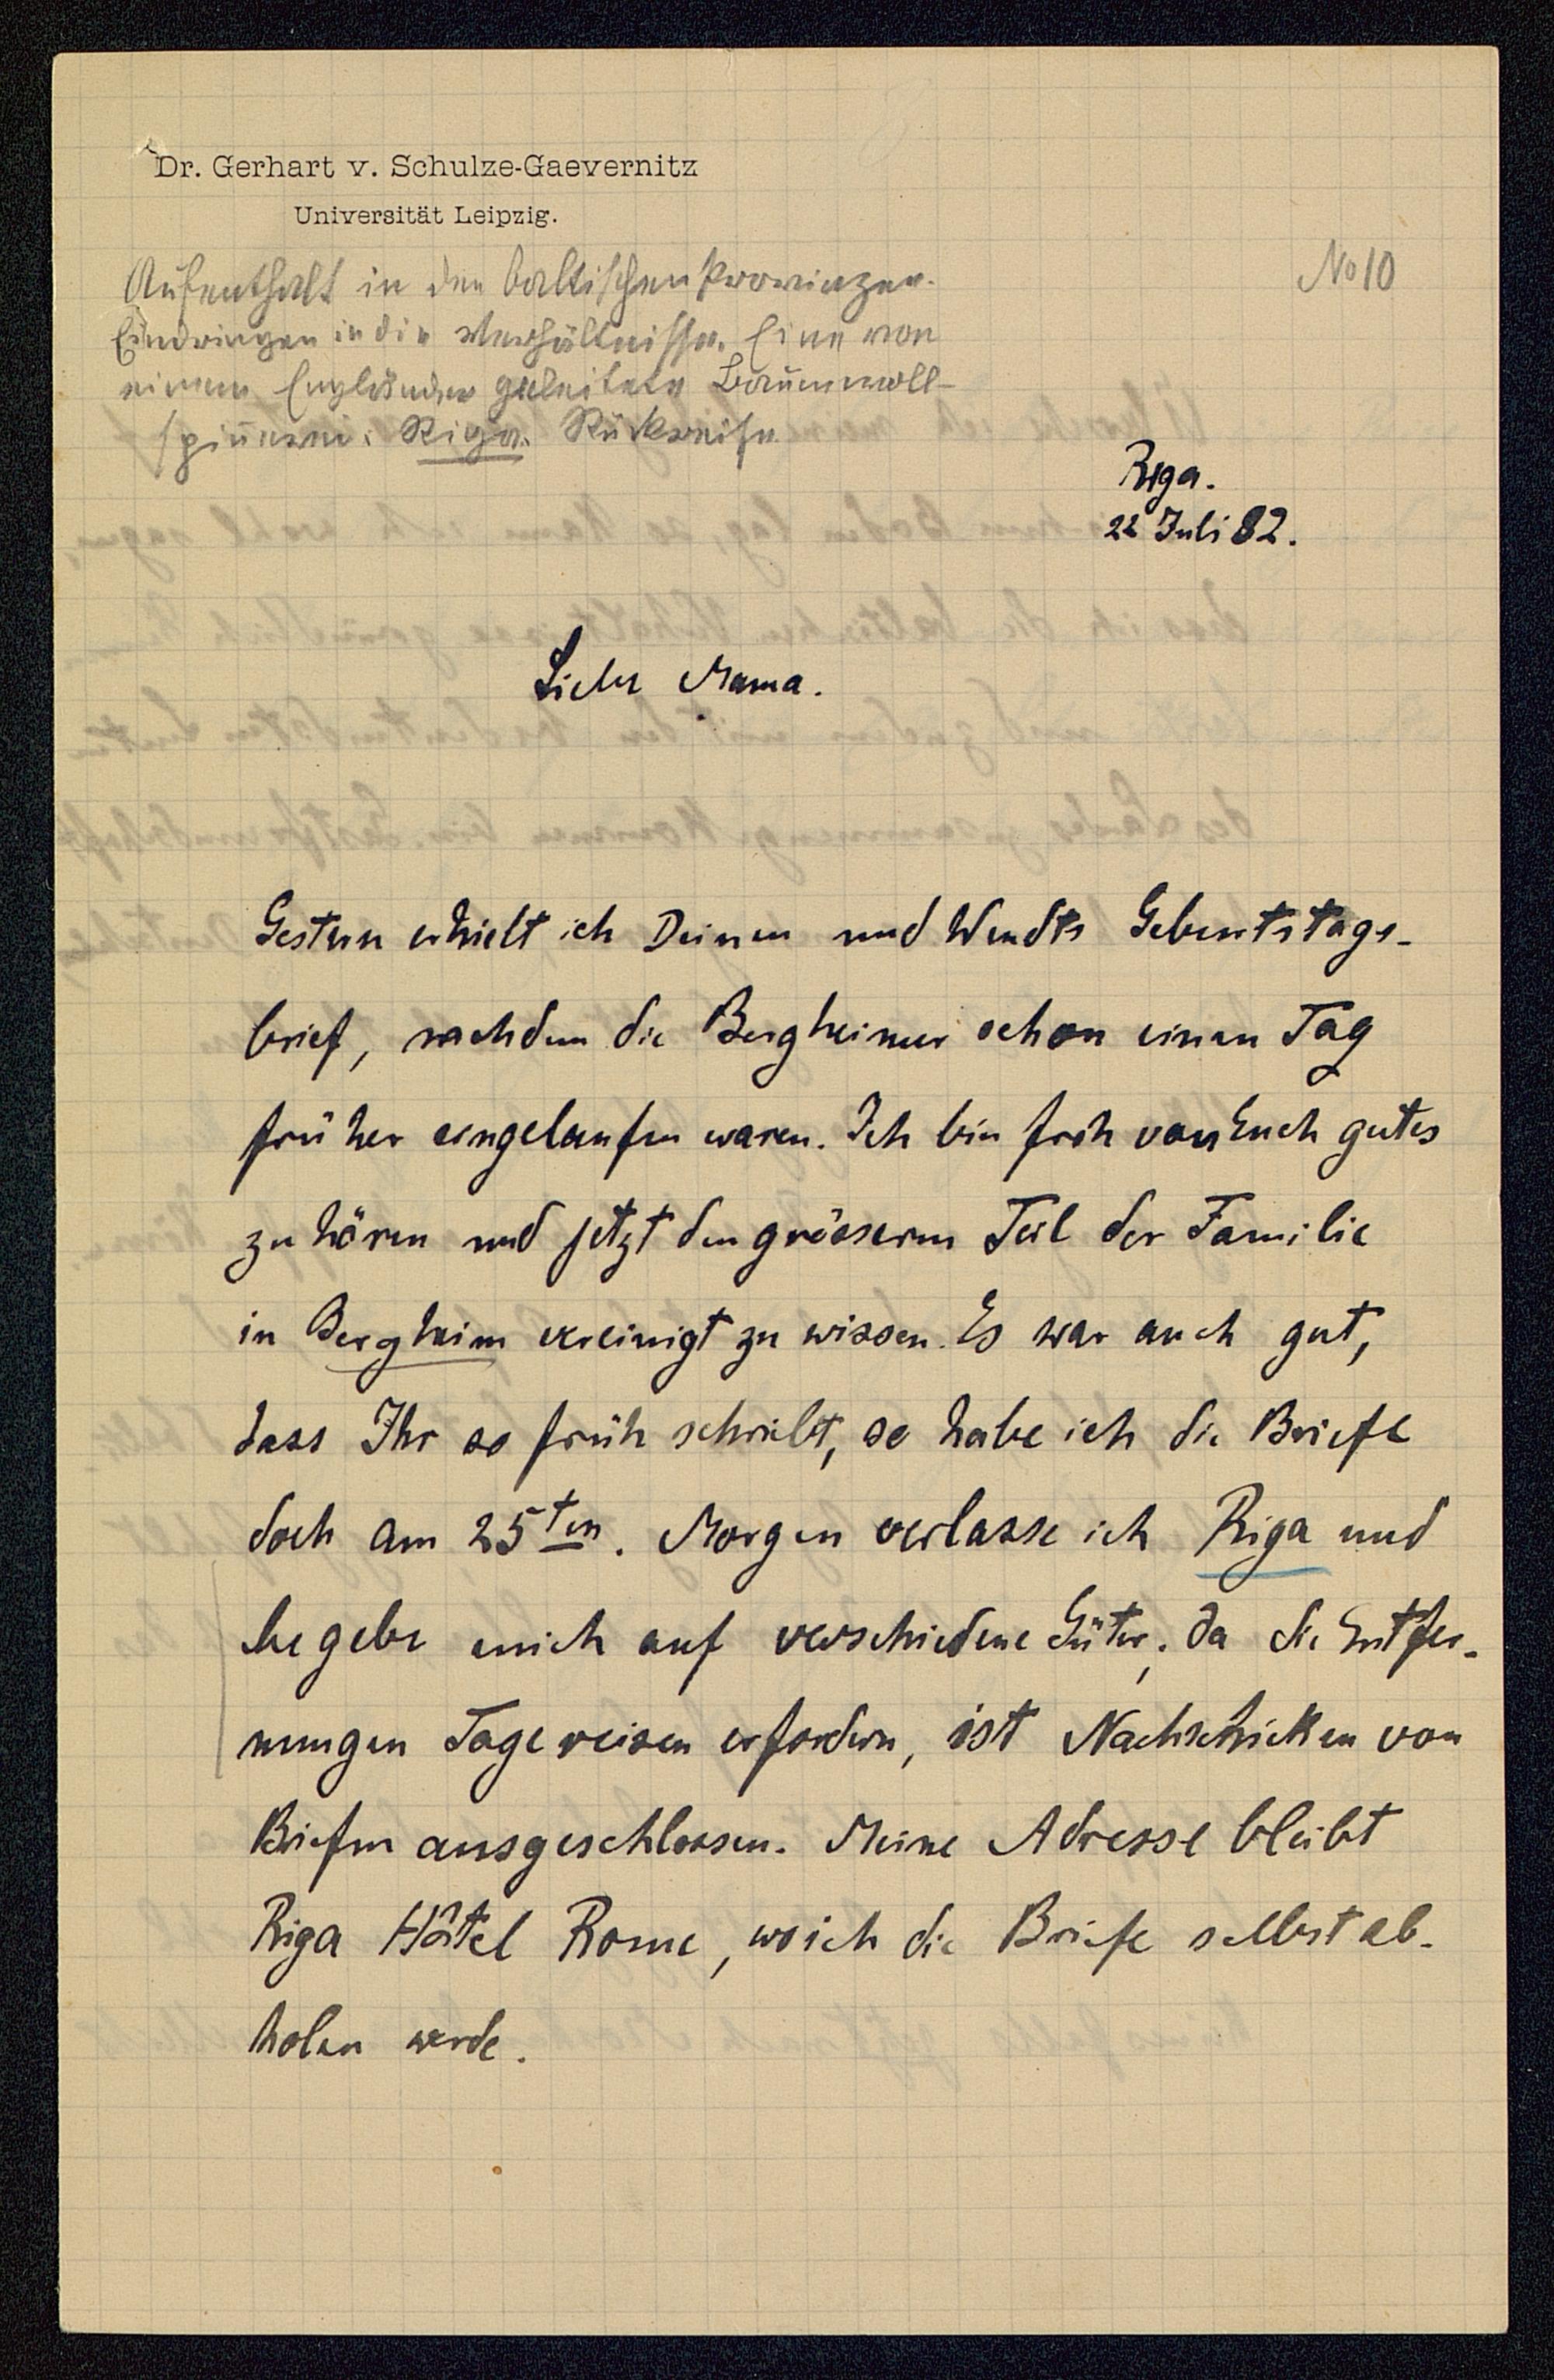 Dr. Gerhart v. Schulze-Gaevernitz
Universität Leipzig.
No 10
Aufenthalt in den baltischen Provinzen.
Eindringen in die Verhältnisse. Eine von
einem Engländer geleitete Baumwoll-
spinnerei. Riga. Rückreise
Riga.
22 Juli 82.
Liebe Mama.
Gestern erhielt ich Deinen und Wendts Geburtstags-
brief, nachdem die Bergheimer schon einen Tag
früher eingelaufen waren. Ich bin froh von Euch gutes
zu hören und jetzt den grösseren Teil der Familie
in Bergheim vereinigt zu wissen. Es war auch gut,
dass Ihr so früh schriebt, so habe ich die Briefe
doch am 25ten. Morgen verlasse ich Riga und
begebe mich auf verschiedene Güter; da die Entfer-
nungen Tagereisen erfordern, ist Nachschicken von
Briefen ausgeschlossen. Meine Adresse bleibt
Riga Hôtel Rome, wo ich die Briefe selbst ab-
holen werde.